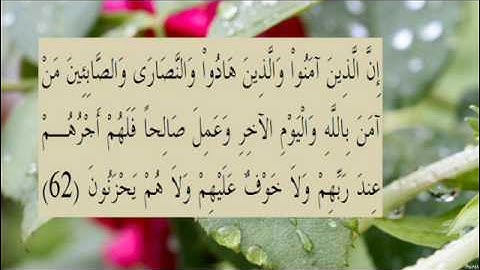 إِنَّ الَّذِينَ آمَنُواْ وَالَّذِينَ هَادُواْ وَالنَّصَارَى وَالصَّابِئِينَ مَنْ
آمَنَ بِاللَّهِ وَالْيَوْمِ الآخِرِ وَعَمِلَ صَالِحاً فَلَهُمْ أَجْرُهُـــمْ
عِندَ رَبِّهِمْ وَلاَ خَوْفٌ عَلَيْهِمْ وَلاَ هُمْ يَحْزَنُونَ (62)